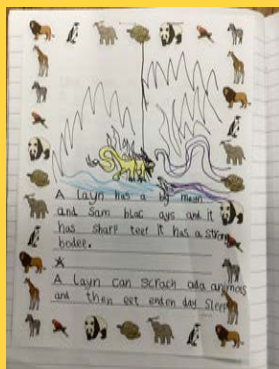 A layn has a big mean
and Sam blac ays and it
has sharp teef it has a strong
bodee.
A layn can scrach ada animals
and then eet enden day sleep